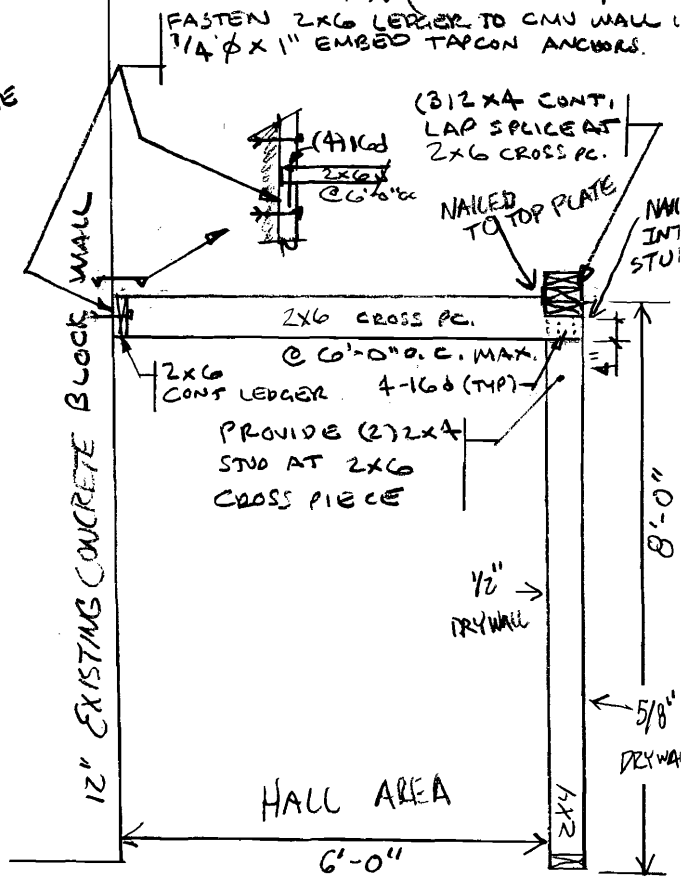 FASTEN 2X6 LEDGER TO CMU WALL
1/4"Ø X 1" EMBED TAPCON ANCHORS.
(3) 2X4 CONT.
LAP SPLICE AT
2X6 CROSS PC.
(4) 16d
2X6
@ 6'-0" OC
NAILED
TO TOP PLATE
2X6 CROSS PC.
@ 6'-0" O.C. MAX.
2X6
CONT LEDGER
4-16d (TYP)
4"
PROVIDE (2) 2X4
STUD AT 2X6
CROSS PIECE
12" EXISTING CONCRETE BLOCK WALL
8'-0"
1/2"
DRYWALL
5/8"
HALL AREA
2X4
6'-0"